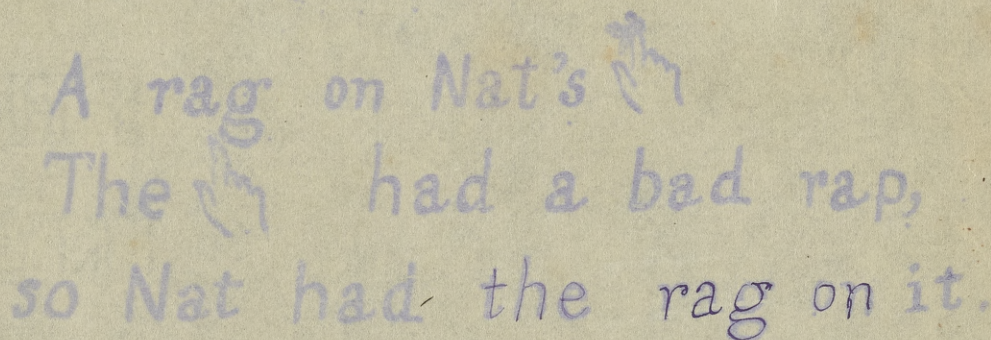 A rag on Nat's
The had a bad rap,
so Nat had the rag on it.